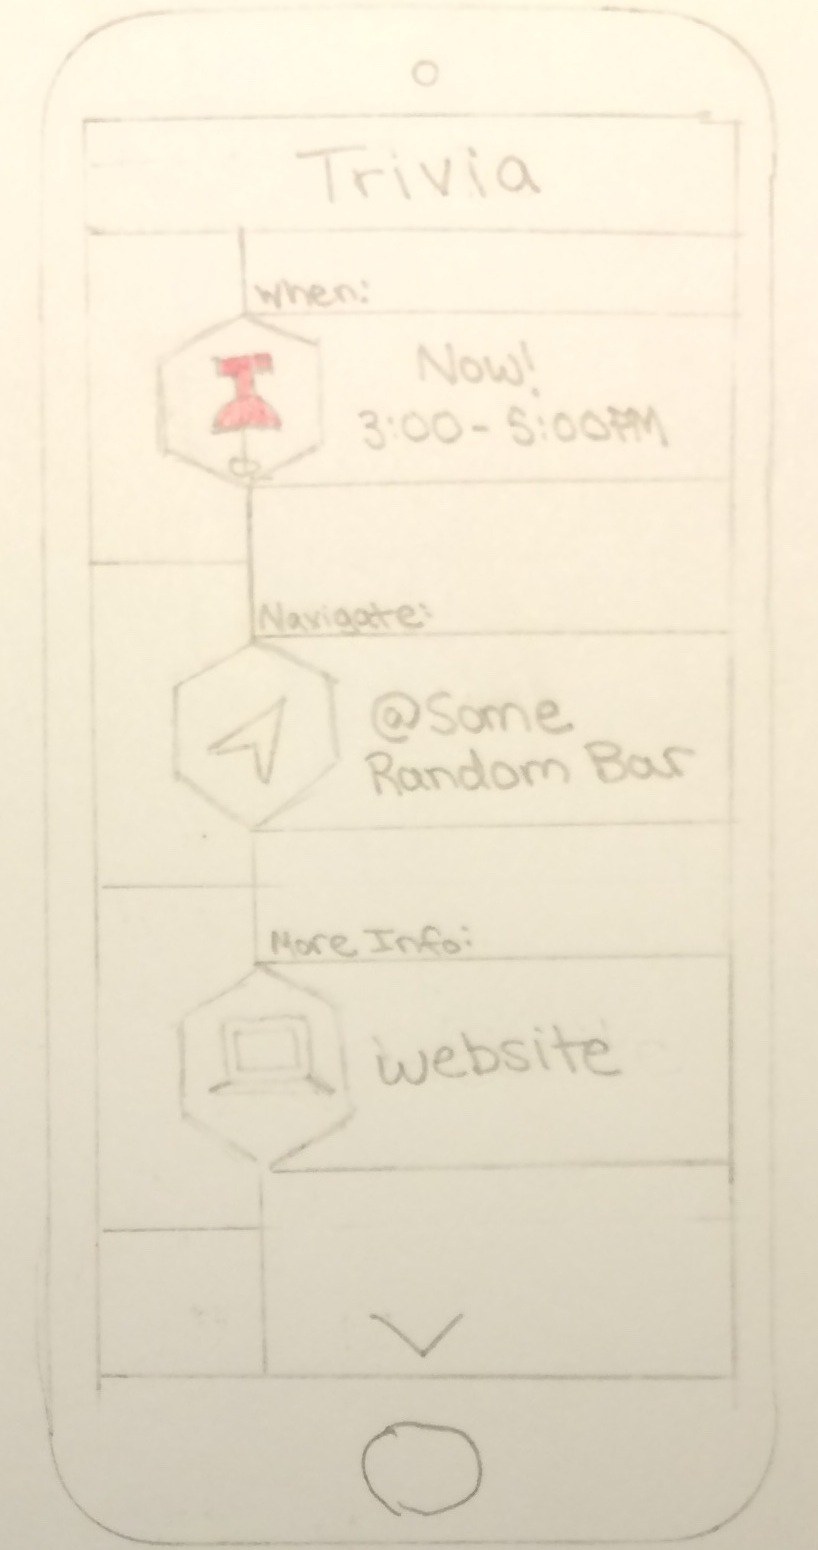 Trivia
When:
Now!
3:00 - 5:00PM
Navigate:
@Some
Random Bar
More Info:
website